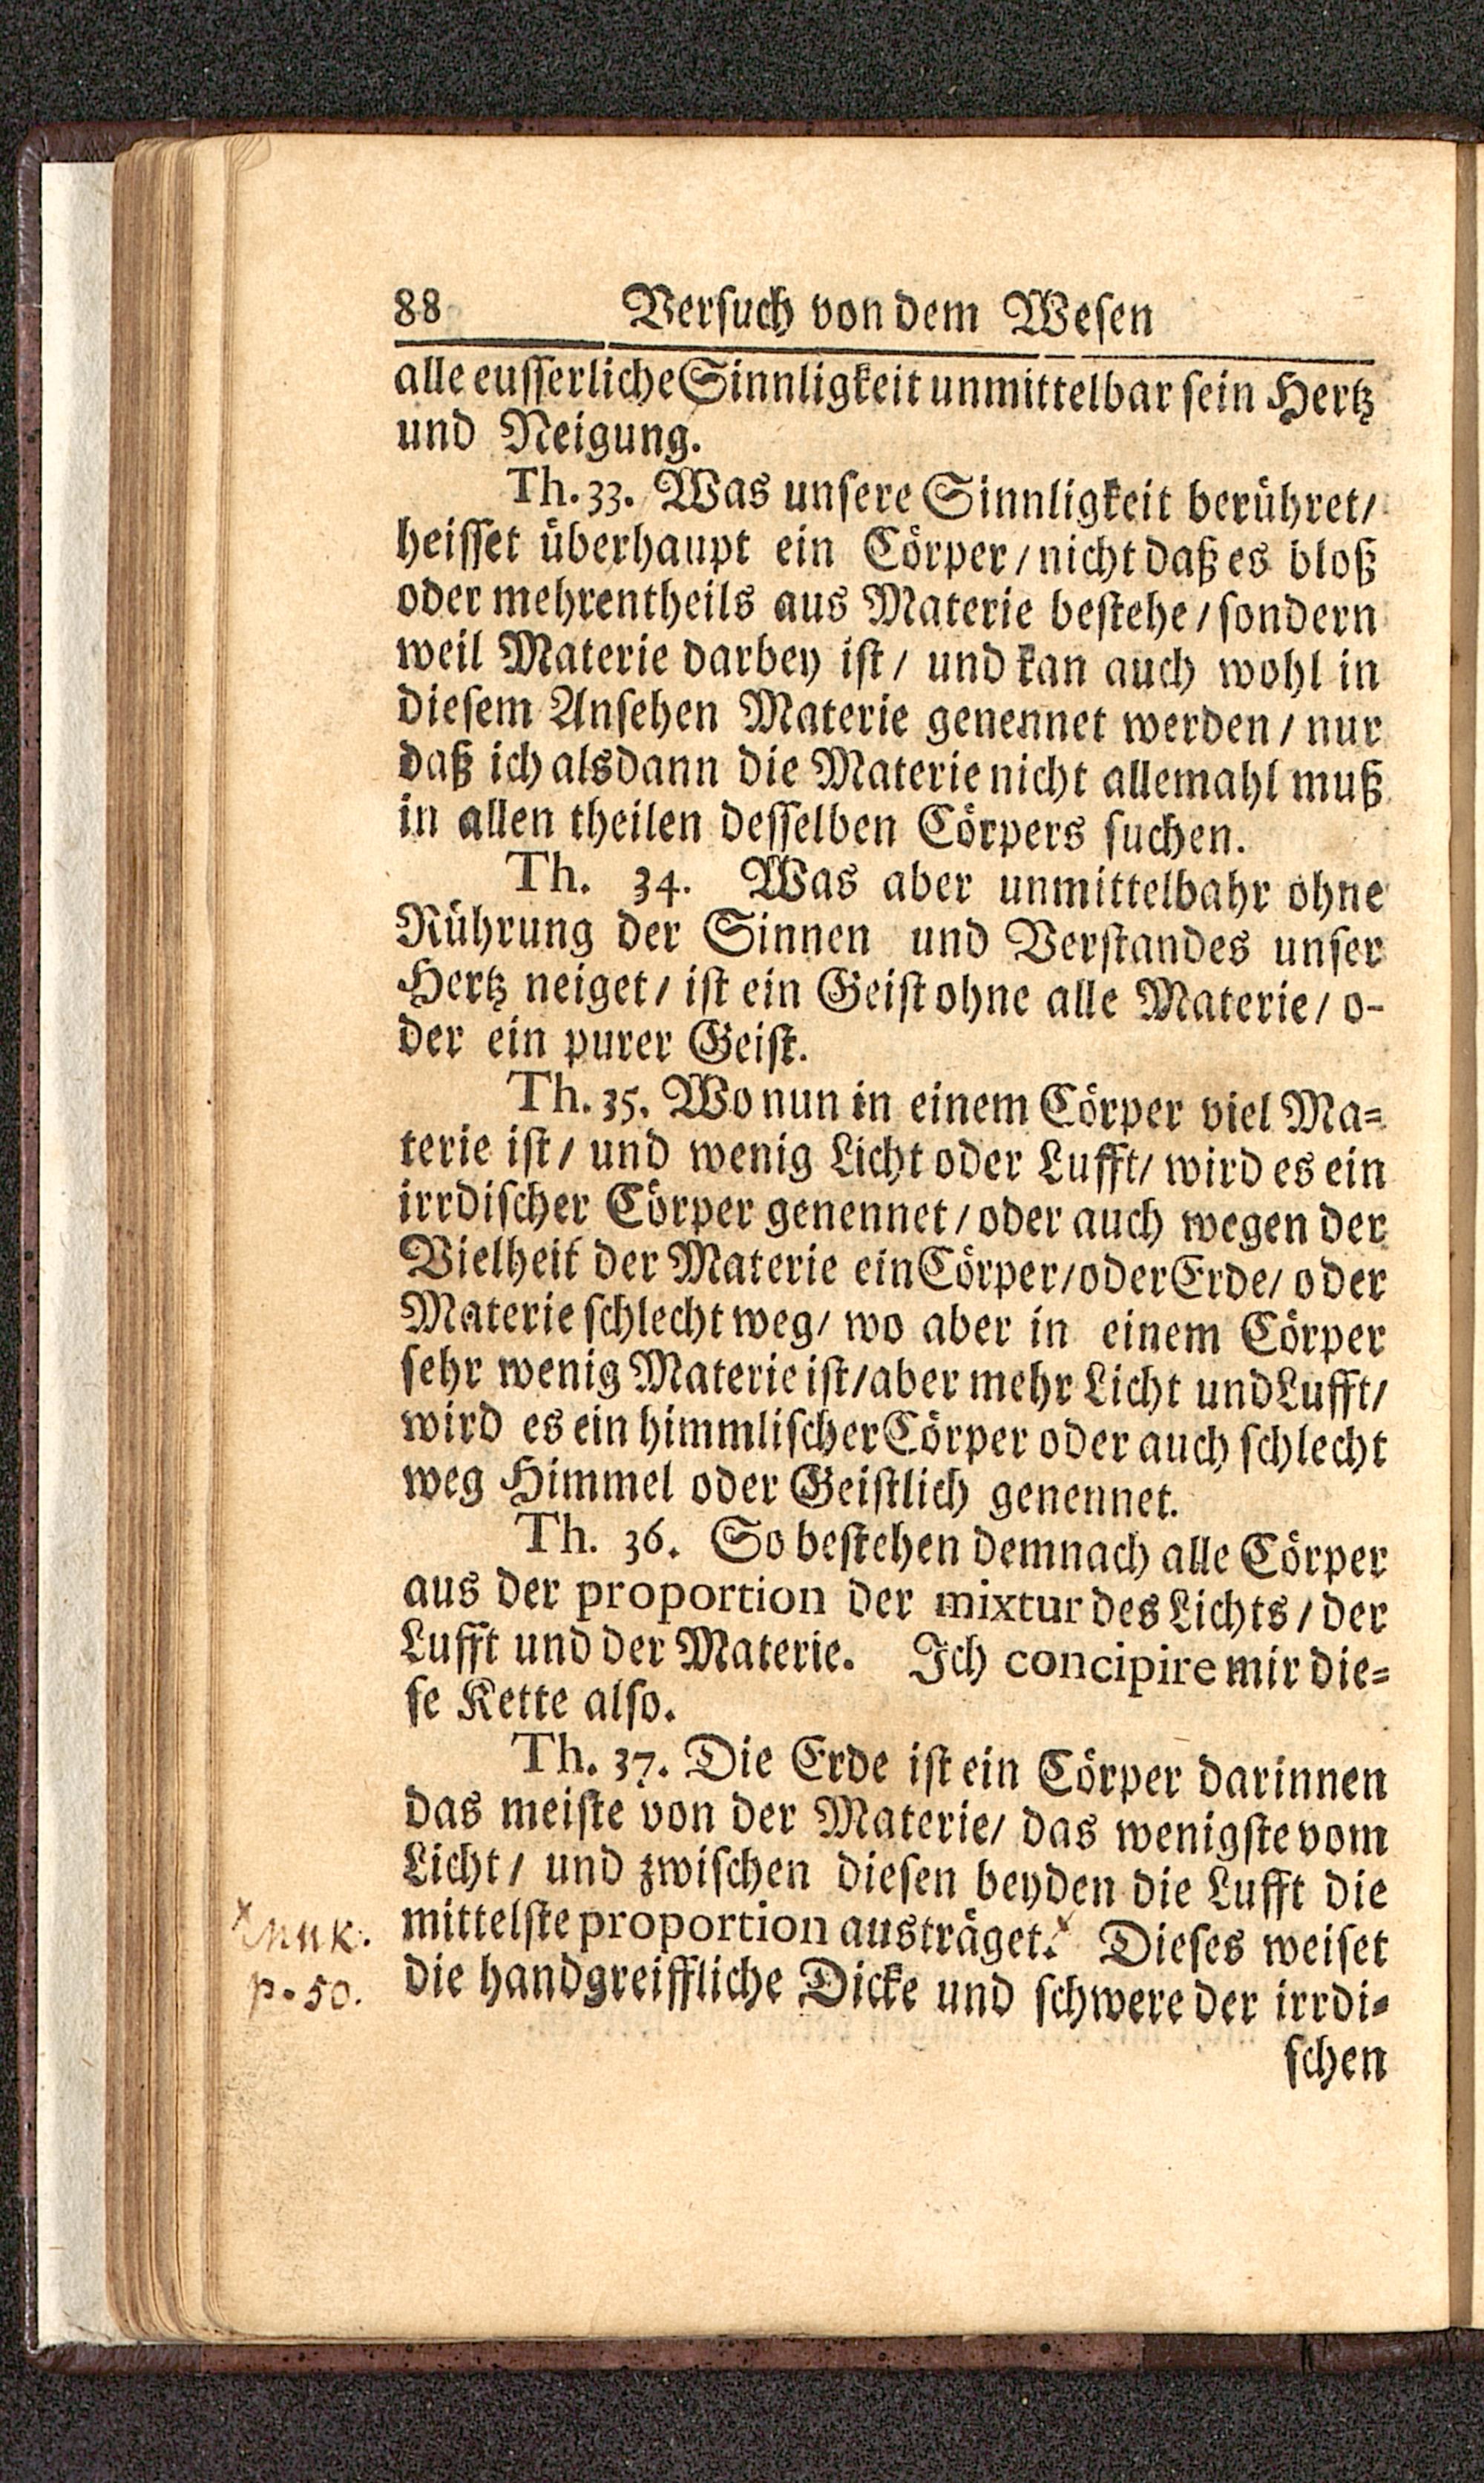 88 Versuch von dem Wesen
alle eusserliche Sinnligkeit unmittelbar sein Hertz
und Neigung.
Th. 33. Was unsere Sinnligkeit berühret/
heisset überhaupt ein Cörper/ nicht daß es bloß
oder mehrentheils aus Materie bestehe/ sondern
weil Materie darbey ist/ und kan auch wohl in
diesem Ansehen Materie genennet werden/ nur
daß ich alsdann die Materie nicht allemahl muß
in allen theilen desselben Cörpers suchen.
Th. 34. Was aber unmittelbahr ohne
Rührung der Sinnen und Verstandes unser
Hertz neiget/ ist ein Geist ohne alle Materie/ o-
der ein purer Geist.
Th. 35. Wo nun in einem Cörper viel Ma=
terie ist/ und wenig Licht oder Lufft/ wird es ein
irrdischer Cörper genennet/ oder auch wegen der
Vielheit der Materie ein Cörper/ oder Erde/ oder
Materie schlecht weg/ wo aber in einem Cörper
sehr wenig Materie ist/ aber mehr Licht und Lufft/
wird es ein himmlischer Cörper oder auch schlecht
weg Himmel oder Geistlich genennet.
Th. 36. So bestehen demnach alle Cörper
aus der proportion der mixtur des Lichts/ der
Lufft und der Materie. Ich concipire mir die=
se Kette also.
Th. 37. Die Erde ist ein Cörper darinnen
das meiste von der Materie/ das wenigste vom
Licht/ und zwischen diesen beyden die Lufft die
mittelste proportion austräget. x Dieses weiset
die handgreiffliche Dicke und schwere der irrdi=
schen
x
p. 50.